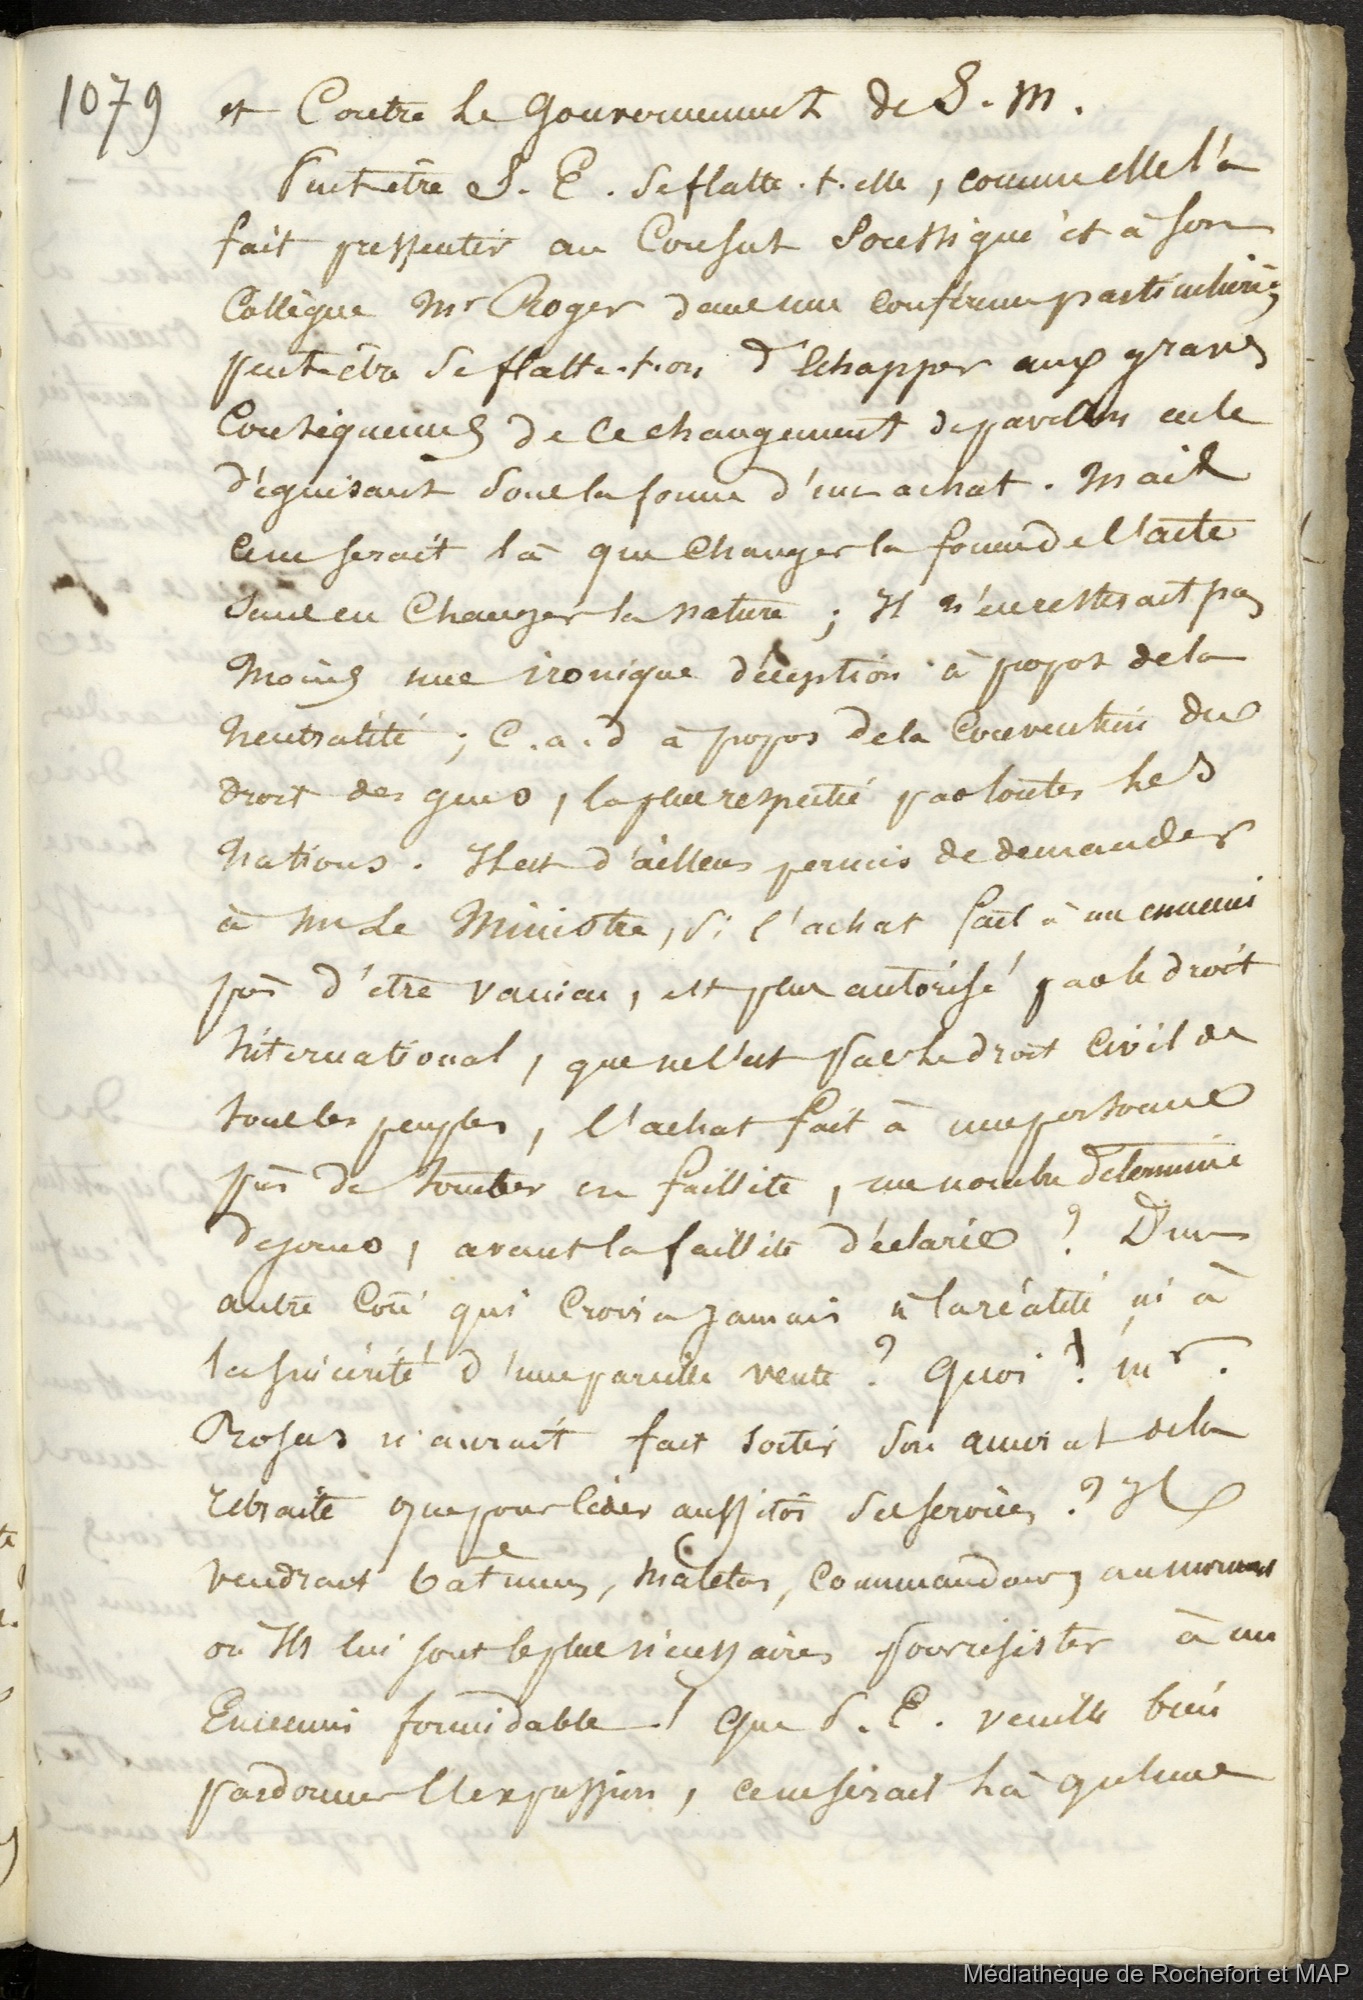 1079
et Contre le Gouvernement de S. M.
Peut être S. E. se flatte-t-elle, comme elle l'a
fait pressentir au Consul soussigné et à son
Collègue Mr Roger dans une conférence particulière,
peut être se flatte-t-on d'échapper aux graves
Conséquences de ce changement de pavillon en le
déguisant sous la forme d'un achat. Mais
ce ne serait là que changer la forme de l'acte
sans en changer la nature ; Il n'en resterait pas
moins une ironique déception à propos de la
neutralité ; c. a. d à propos de la Convention du
droit des gens, la plus respectée par toutes les
Nations. Il est d'ailleurs permis de demander
à Mr Le Ministre, si l'achat fait à un ennemi
près d'être vaincu, est plus autorisé par le droit
International, que ne l'est par le droit Civil de
tous les peuples, l'achat fait à une personne
près de tomber en faillite, un nombre déterminé
de jours, avant la faillite déclarée ? D'un
autre Coté qui Croira jamais à la réalité ni à
la sincérité d'une pareille vente ? Quoi ! Mr.
Rosas n'aurait fait sortir son amiral de la
retraite que pour céder aussitôt ses services ? Il
vendrait batimens, matelots, commandans, au moment
où Ils lui sont le plus nécessaires pour résister à un
Ennemi formidable ! Que S. E. veuille bien
pardonner l'expression, ce ne serait là qu'une
Médiathèque de Rochefort et MAP